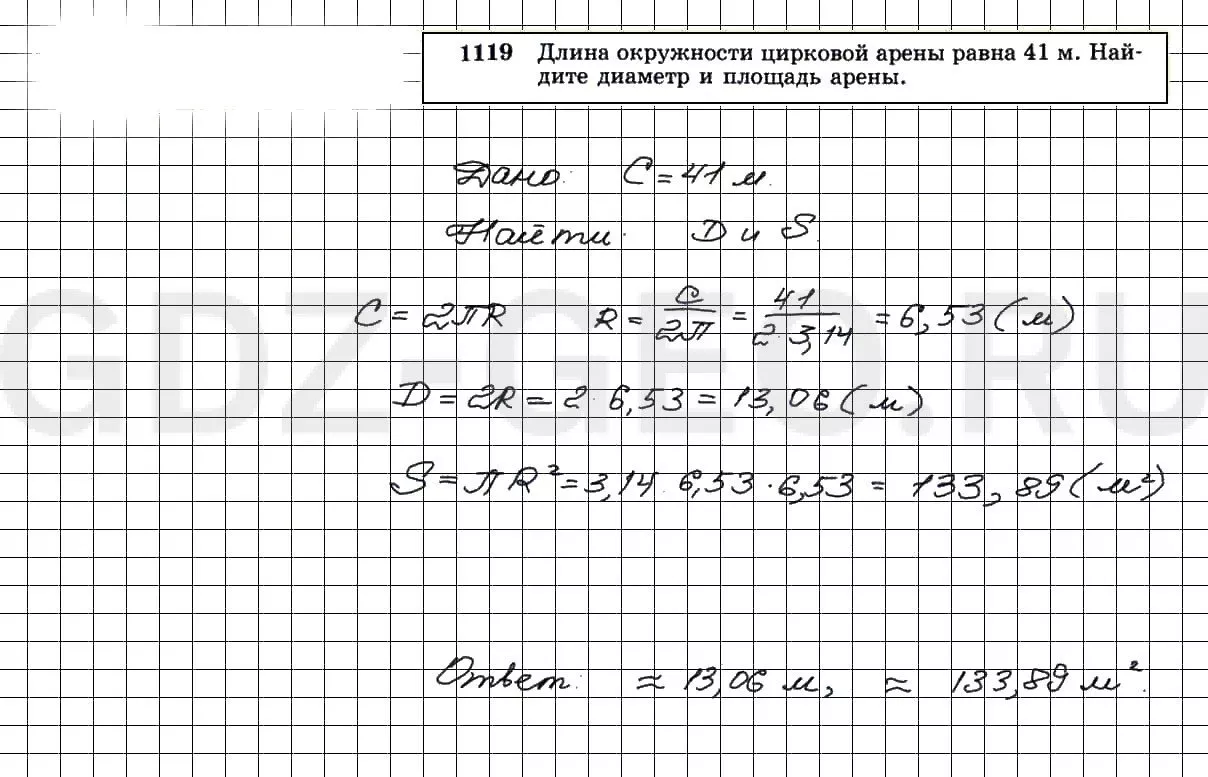 1119 Длина окружности цирковой арены равна 41 м. Най-
дите диаметр и площадь арены.
Дано: C = 41 м.
Найти: D и S.
C = 2πR R = C/2π = 41/2·3,14 = 6,53 (м)
D = 2R = 2·6,53 = 13,06 (м)
S = πR² = 3,14·6,53·6,53 = 133,89 (м²)
Ответ: ≈ 13,06 м, ≈ 133,89 м².
GDZ-GEO.RU